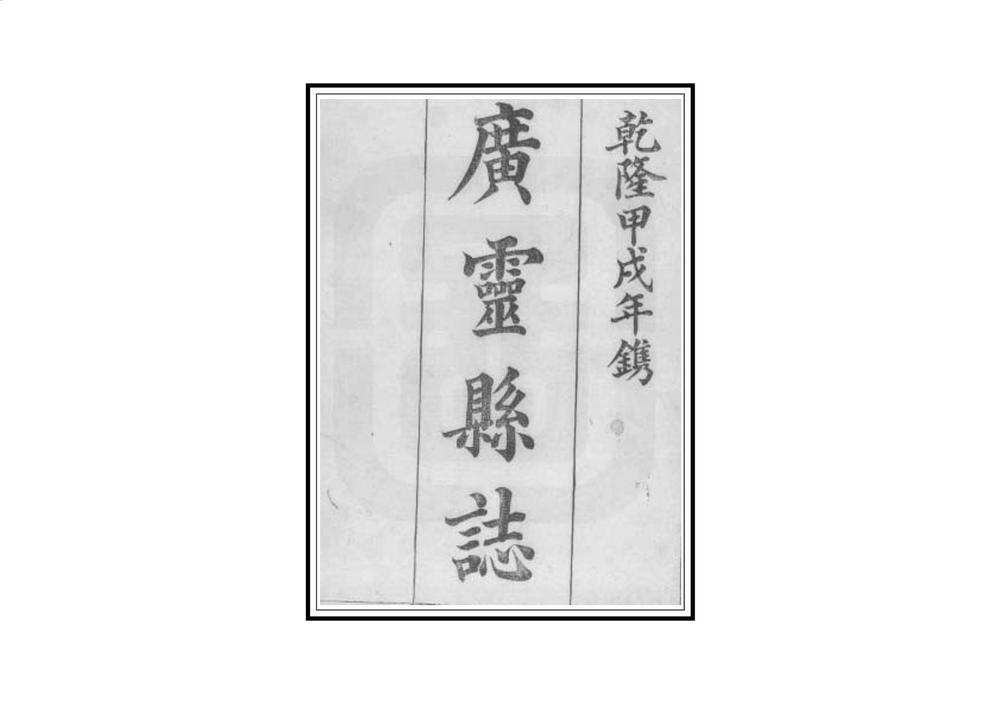 乾隆甲戌年鐫
廣靈縣誌